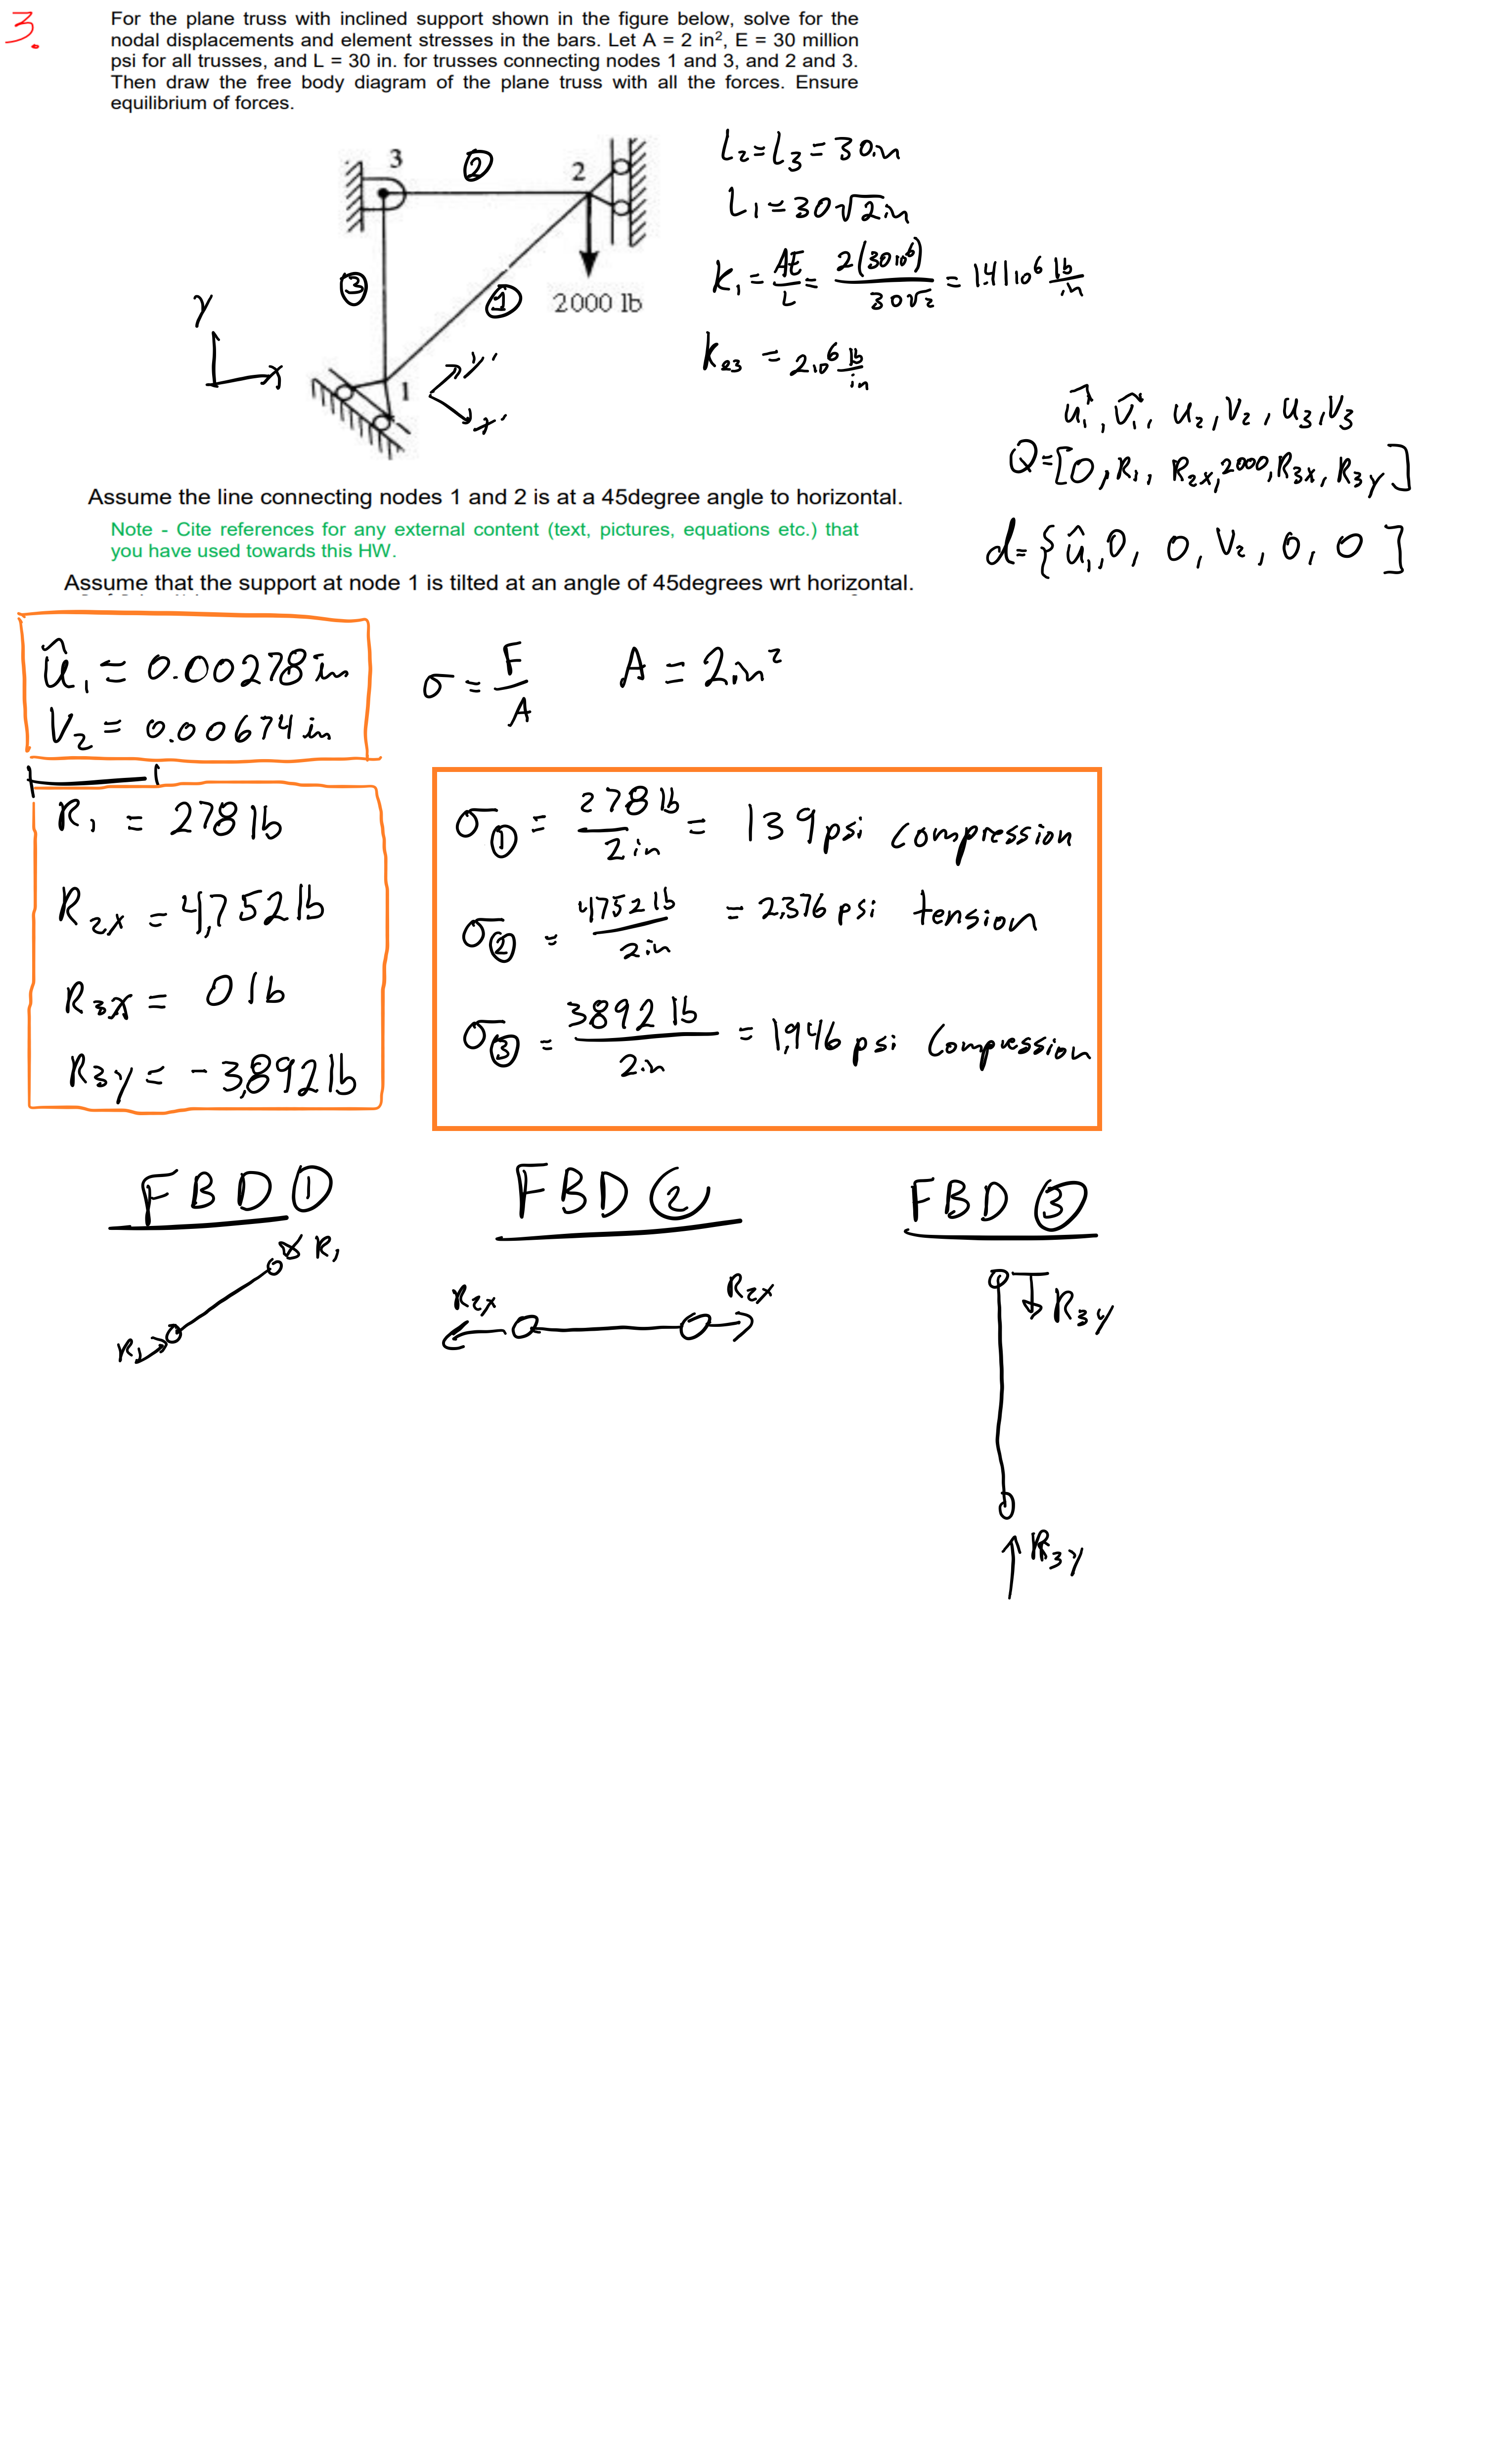 3.
For the plane truss with inclined support shown in the figure below, solve for the
nodal displacements and element stresses in the bars. Let A = 2 in², E = 30 million
psi for all trusses, and L = 30 in. for trusses connecting nodes 1 and 3, and 2 and 3.
Then draw the free body diagram of the plane truss with all the forces. Ensure
equilibrium of forces.
3
②
2
③
①
2000 lb
1
Y
x
y'
x'
L₂ = L₃ = 30in
L₁ = 30√2 in
K₁ = AE/L = 2(30 10⁶)/30√2 = 1.41 10⁶ lb/in
k₂₃ = 2 10⁶ lb/in
û₁, v̂₁, u₂, v₂, u₃, v₃
Q = [0, R₁, R₂ₓ, 2000, R₃ₓ, R₃y]
d = {û₁, 0, 0, V₂, 0, 0]
Assume the line connecting nodes 1 and 2 is at a 45degree angle to horizontal.
Note - Cite references for any external content (text, pictures, equations etc.) that
you have used towards this HW.
Assume that the support at node 1 is tilted at an angle of 45degrees wrt horizontal.
û₁ = 0.00278 in
V₂ = 0.00674 in
σ = F/A
A = 2in²
R₁ = 278 lb
R₂ₓ = 4,752 lb
R₃ₓ = 0 lb
R₃y = - 3,892 lb
σ① = 278 lb/2 in = 139 psi compression
σ② = 4752 lb/2 in = 2,376 psi tension
σ③ = 3892 lb/2 in = 1,946 psi Compression
FBD ①
FBD ②
FBD ③
R₁
R₁
R₂ₓ
R₂ₓ
R₃y
R₃y